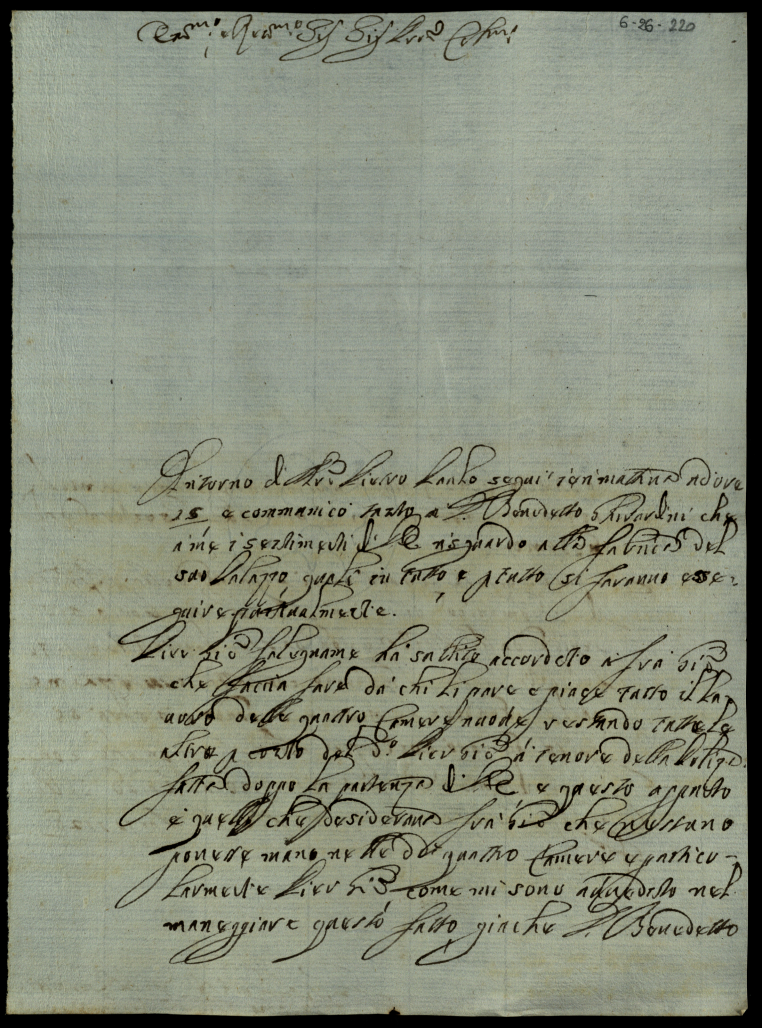 6-26-220
Em.mo e Rev.mo Sig Sig
Intorno di Pietro Paolo seguì ieri mattina ad ore
15 e communicò tanto a D. Benedetto Gherardini che
a me i sentimenti di VE risguardo alla fabrica del
suo Palazzo quali in tutto e p tutto si faranno ese:
guire puntualmente.
Pier Gio falegname hà subito accordato a frà Gio
che faccia fare da chi li pare e piace tutto il la:
uoro delle quattro Camere nuoue restando tutte le
altre p conto del d.o Pier Gio à tenore della Poliza
fatta doppo la partenza di VE e questo apunto
è quello che desideraua frà Gio che nessuno
ponesse mano nelle di quattro Camere e particu-
larmente Pier Gio come mi sono aueduto nel
maneggiare questo fatto giache D. Benedetto